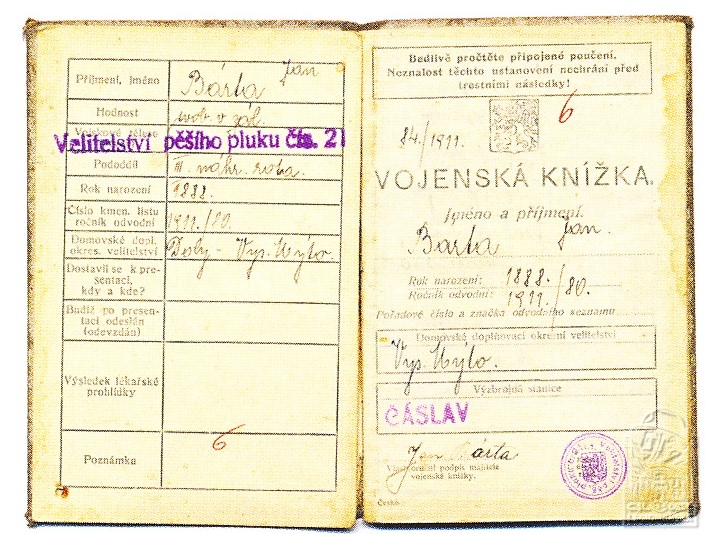 Příjmení, jméno
Bárta Jan
Hodnost
voj. v zál.
Vojskové těleso
Velitelství pěšího pluku čís. 21
Pododdíl
III. náhr. rota.
Rok narození
1888.
Číslo kmen. listu
ročník odvodní
1911/80.
Domovské dopl.
okres. velitelství
Doly - Vys. Mýto.
Dostavil se k pre-
sentaci,
kdy a kde?
Budiž po presen-
taci odeslán
(odevzdán)
Výsledek lékařské
prohlídky
Poznámka
6
Bedlivě pročtěte připojené poučení.
Neznalost těchto ustanovení nechrání před
trestními následky!
6
84/1911.
VOJENSKÁ KNÍŽKA.
Jméno a příjmení.
Bárta Jan.
Rok narození: 1888
Ročník odvodní: 1911/80.
Pořadové číslo a značka odvodního seznamu
Domovské doplňovací okresní velitelství
Vys. Mýto.
Výzbrojná stanice
ČÁSLAV
Jan Bárta
Vlastnoruční podpis majitele
vojenské knížky.
Česko